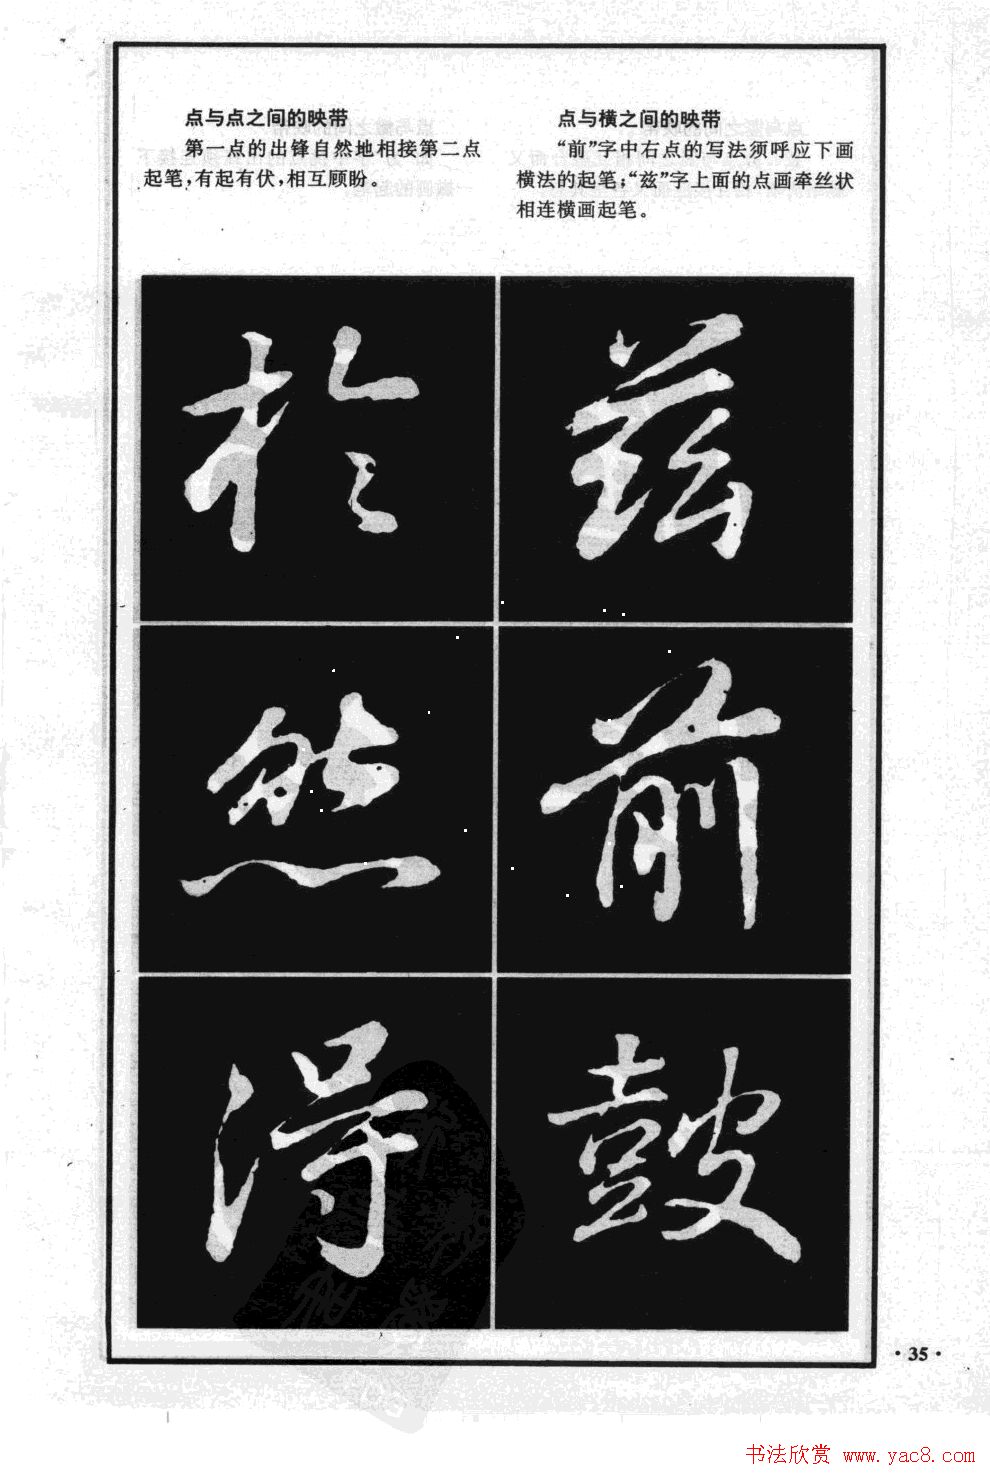 点与点之间的映带
第一点的出锋自然地相接第二点
起笔,有起有伏,相互顾盼。
点与横之间的映带
“前”字中右点的写法须呼应下画
横法的起笔;“兹”字上面的点画牵丝状
相连横画起笔。
於
然
得
兹
前
鼓
·35·
书法欣赏 www.yac8.com